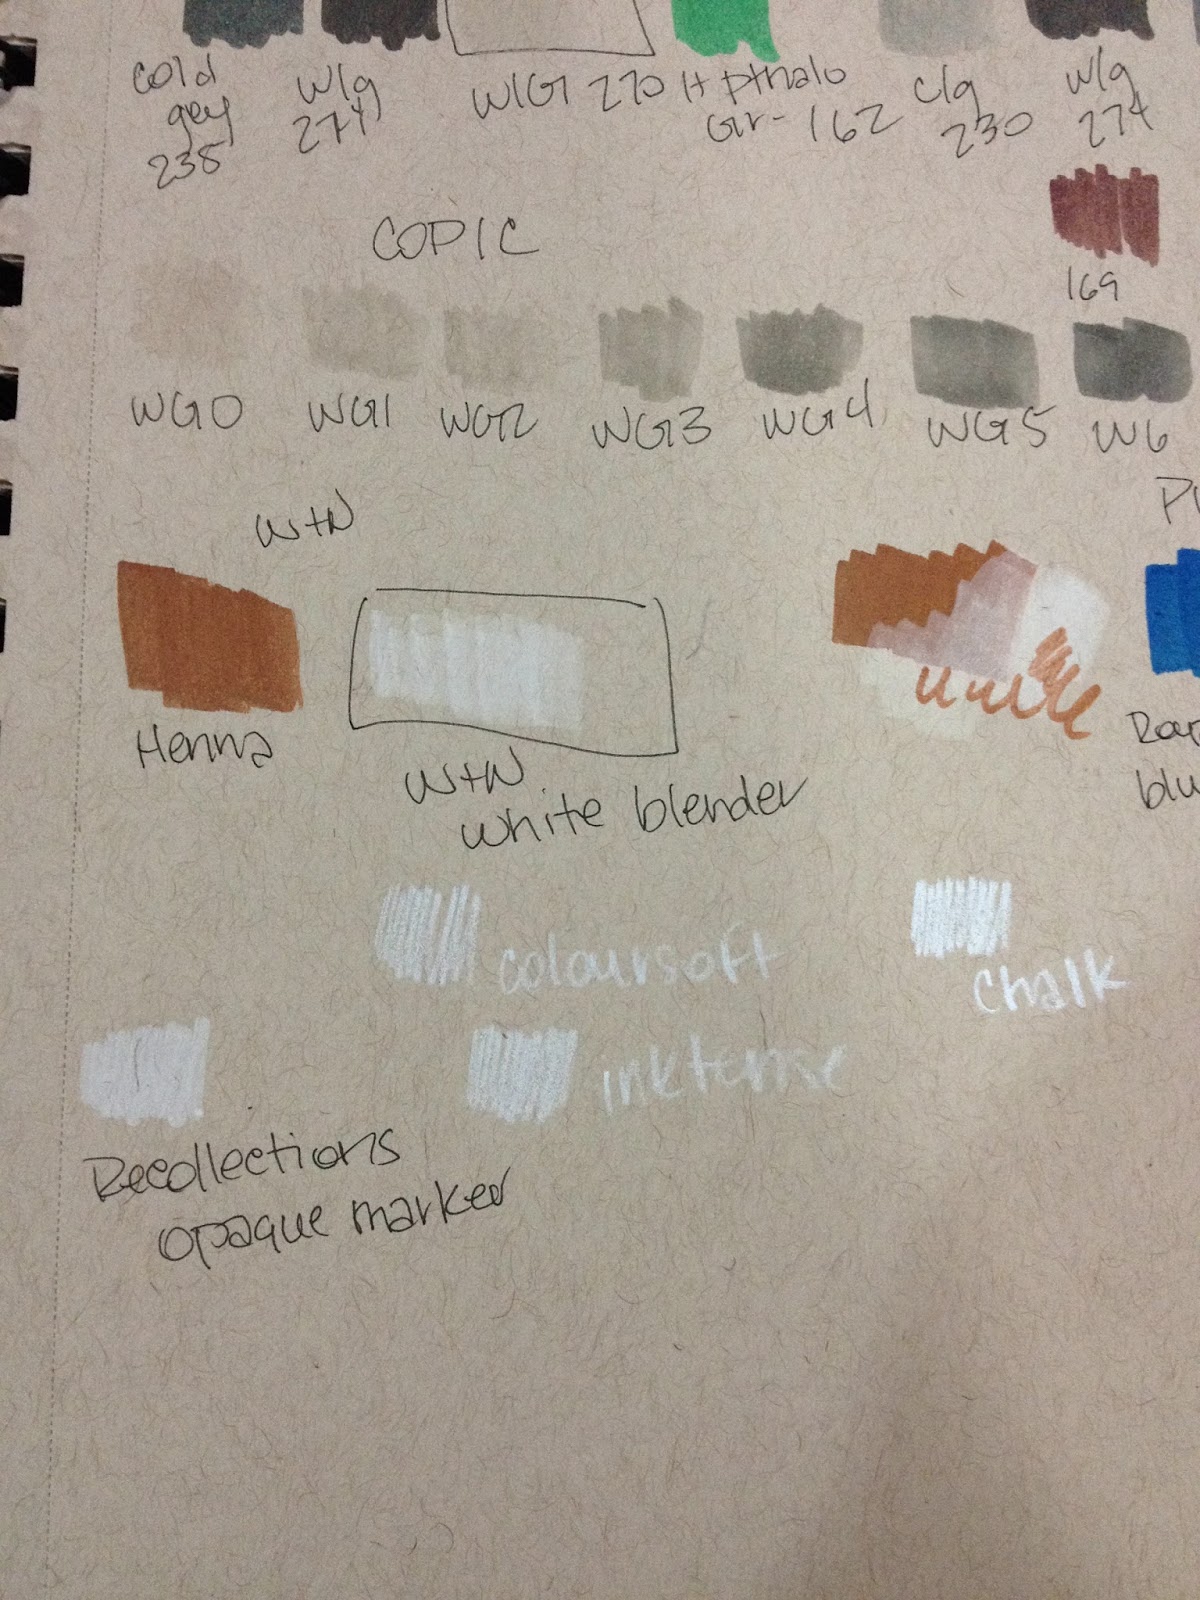 cold
grey
235
W/g
274
W/G 270
H pthalo
Gr- 162
c/g
230
w/g
274
169
COPIC
WG0
WG1
WG2
WG3
WG4
WG5
W6
W+N
Henna
W+N
white blender
blu
coloursoft
chalk
inktense
Recollections
opaque marker